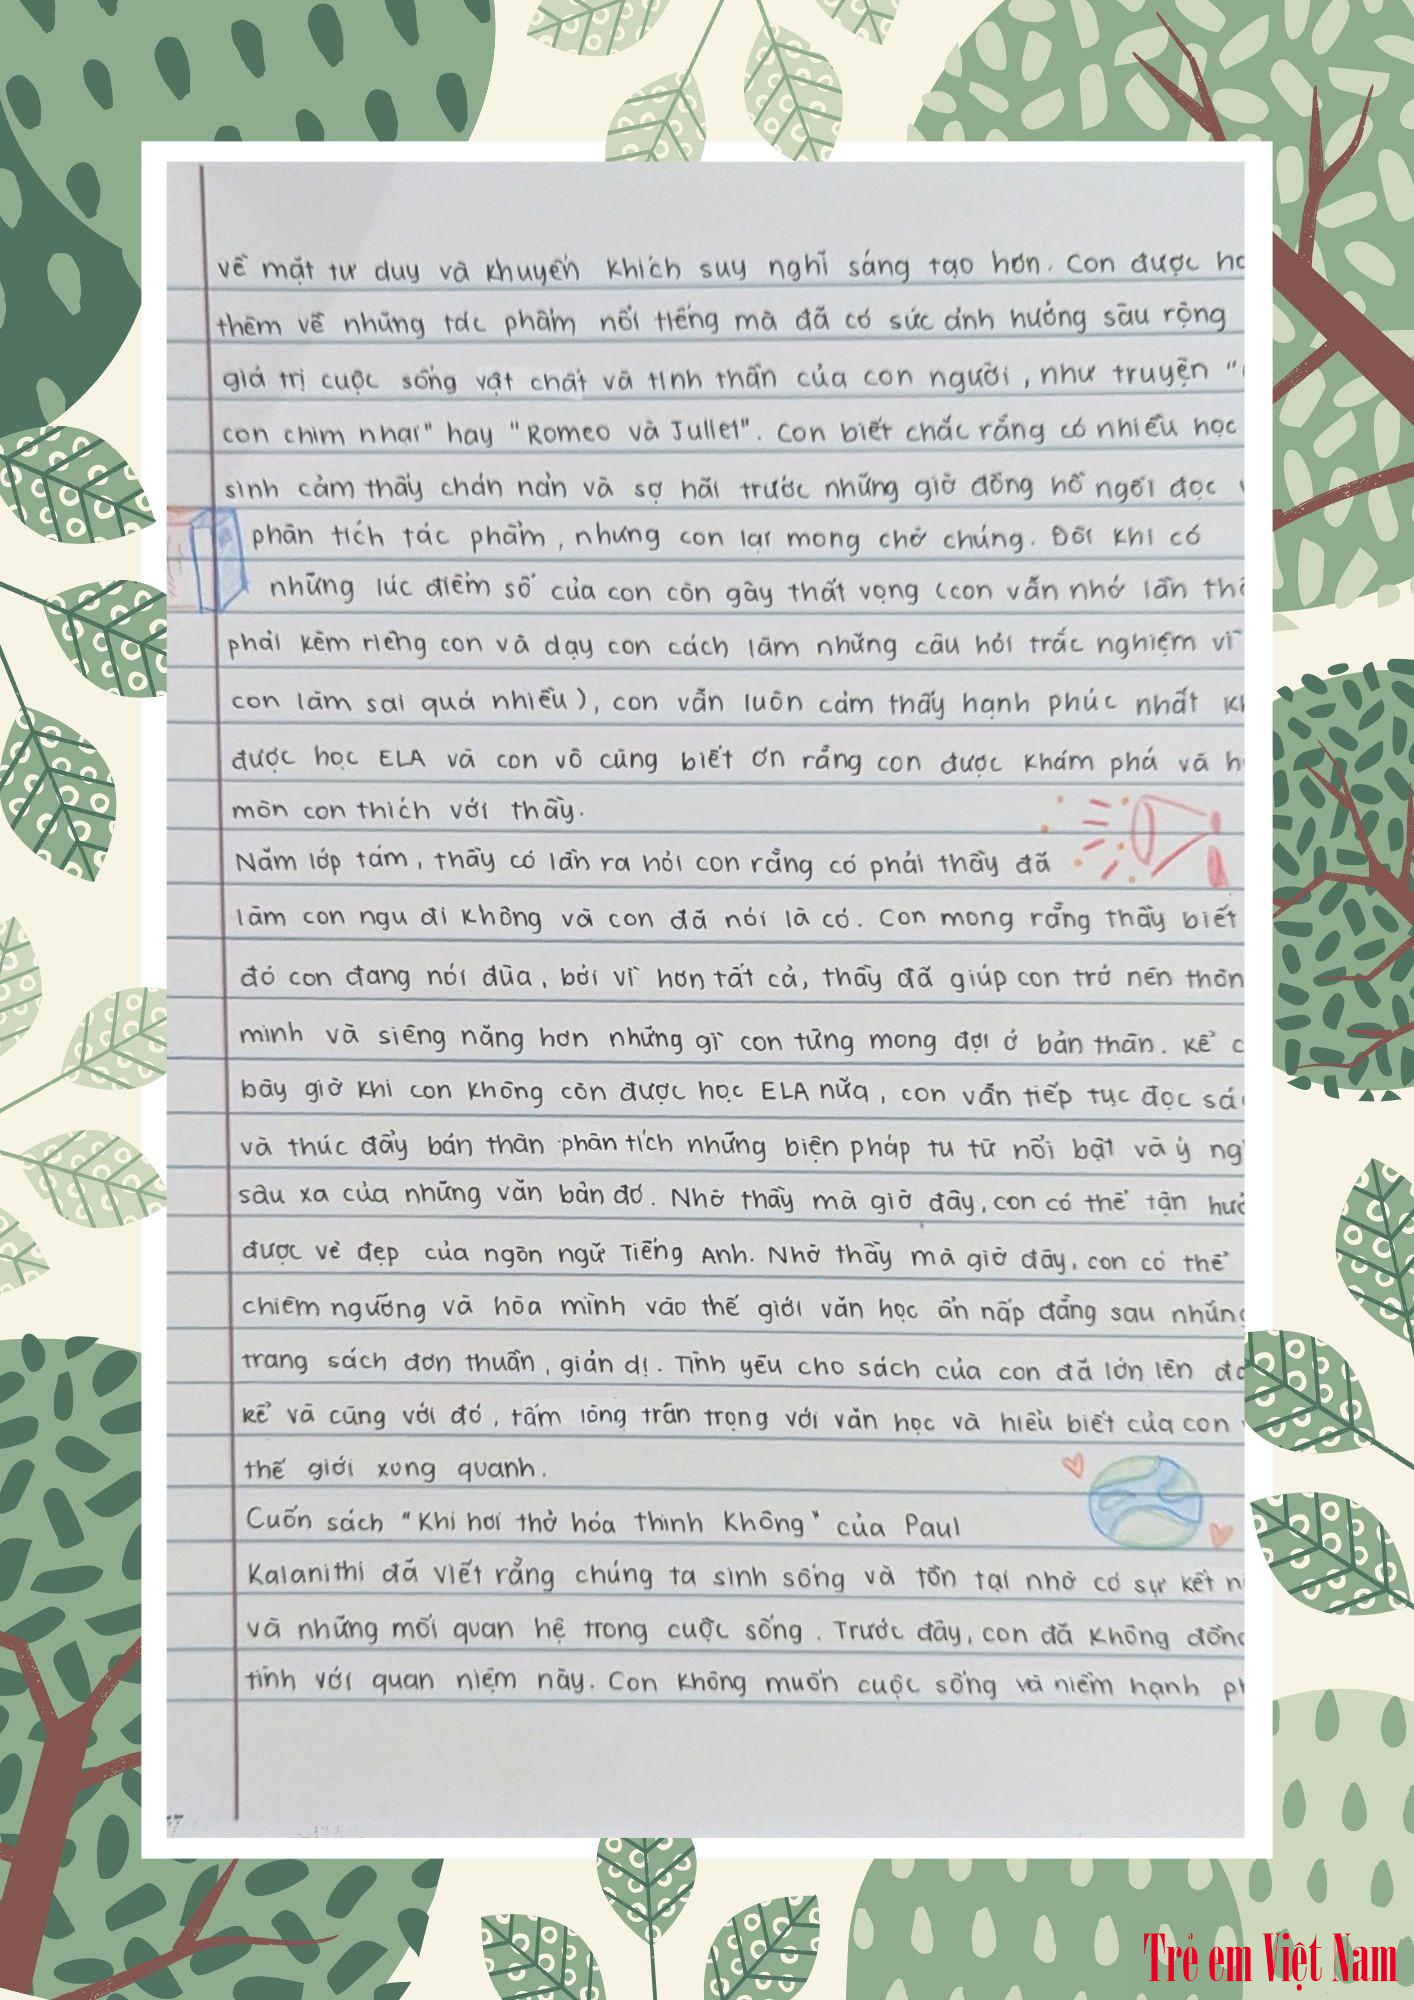 về mặt tư duy và khuyến khích suy nghĩ sáng tạo hơn. Con được
thêm về những tác phẩm nổi tiếng mà đã có sức ảnh hưởng sâu rộng
giá trị cuộc sống vật chất và tinh thần của con người, như truyện "
con chim nhại" hay "Romeo và Juliet". Con biết chắc rằng có nhiều học
sinh cảm thấy chán nản và sợ hãi trước những giờ đồng hồ ngồi đọc
phân tích tác phẩm, nhưng con lại mong chờ chúng. Đôi khi có
những lúc điểm số của con còn gây thất vọng (con vẫn nhớ lần
phải kèm riêng con và dạy con cách làm những câu hỏi trắc nghiệm vì
con làm sai quá nhiều), con vẫn luôn cảm thấy hạnh phúc nhất
được học ELA và con vô cùng biết ơn rằng con được khám phá và
môn con thích với thầy.
Năm lớp tám, thầy có lần ra hỏi con rằng có phải thầy đã
làm con ngu đi không và con đã nói là có. Con mong rằng thầy biết
đó con đang nói đùa, bởi vì hơn tất cả, thầy đã giúp con trở nên
minh và siêng năng hơn những gì con từng mong đợi ở bản thân. Kể
bây giờ khi con không còn được học ELA nữa, con vẫn tiếp tục đọc
và thúc đẩy bán thân phân tích những biện pháp tu từ nổi bật và ý
sâu xa của những văn bản đó. Nhờ thầy mà giờ đây, con có thể tận
được vẻ đẹp của ngôn ngữ Tiếng Anh. Nhờ thầy mà giờ đây, con có thể
chiêm ngưỡng và hòa mình vào thế giới văn học ẩn nấp đằng sau những
trang sách đơn thuần, giản dị. Tình yêu cho sách của con đã lớn lên
kể và cùng với đó, tấm lòng trân trọng với văn học và hiểu biết của con
thế giới xung quanh.
Cuốn sách "Khi hơi thở hóa thinh không" của Paul
Kalanithi đã viết rằng chúng ta sinh sống và tồn tại nhờ có sự kết
và những mối quan hệ trong cuộc sống. Trước đây, con đã không đồng
tình với quan niệm này. Con không muốn cuộc sống và niềm hạnh
Trẻ em Việt Nam